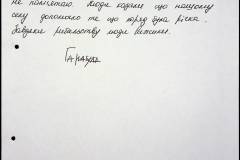 не пам'ятаю. Люди казали що нашому
селу допомагло те що поряд була річка.
Завдяки рибальству люди вижили.